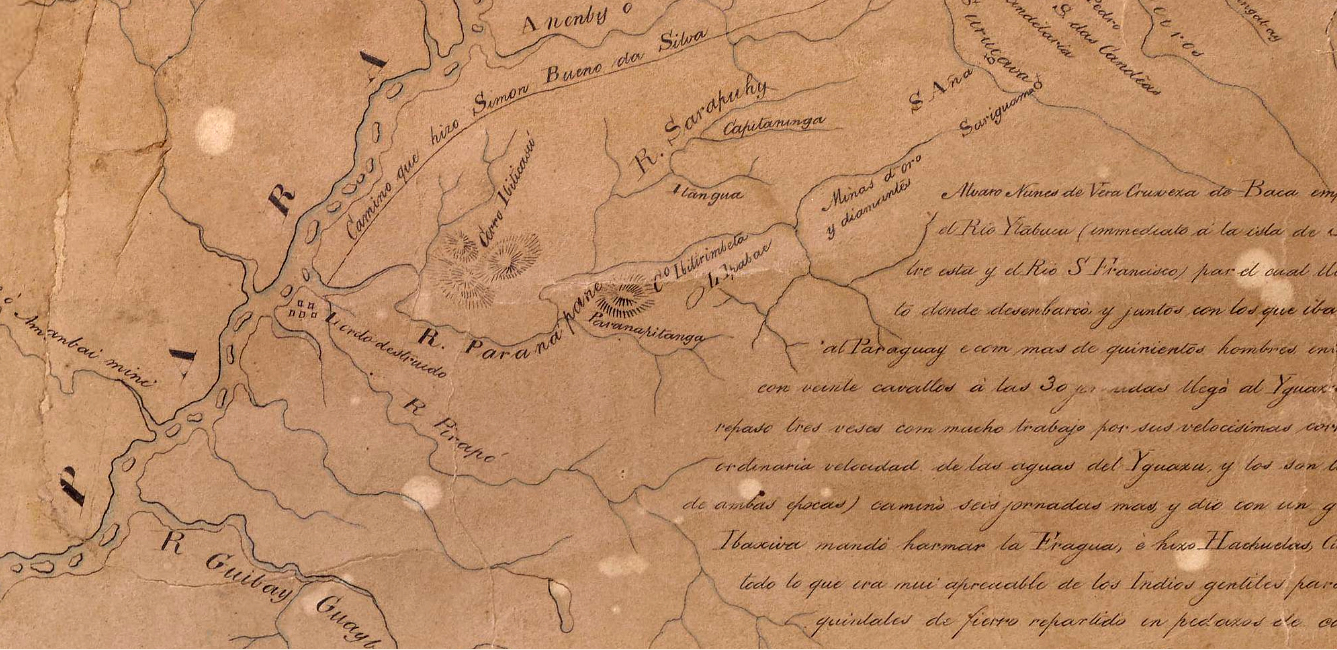 Anenby
Camino que hizo Simon Bueno da Silva
P A R A
Cerro Ibiticaroi
R. Sarapuhy
Capitaninga
Itangua
S Aña
Sariguamo
Pedro
S. das Candēas
Minas d'oro
y diamantes
Cº Ibitirimbeta
R. Parana pane
Paranapitanga
destruido
Amanbai mini
R Pirapó
R Guibay
Guayb
Alvaro Nunes de Vera Cruveza de Baca em
el Rio Ytabucu (immediato à la isla de
tre esta y el Rio S Francisco) par el cual
to donde desembarcò y juntos con los que iba
al Paraguay e com mas de quinientos hombres
con veinte cavallos à las 30 llegò al Yguax
repaso tres veses com mucho trabajo por sus velocisimas
ordinaria velocidad de las aguas del Yguaxu, y los son
de ambas epocas) caminò seis jornadas mas, y dio con un g
Ibaxiva mandò harmar la Fragua, è hizo Hachuelas,
todo lo que era mui apreuable de los Indios gentiles para
quintales de fierro repartido en pedazos de